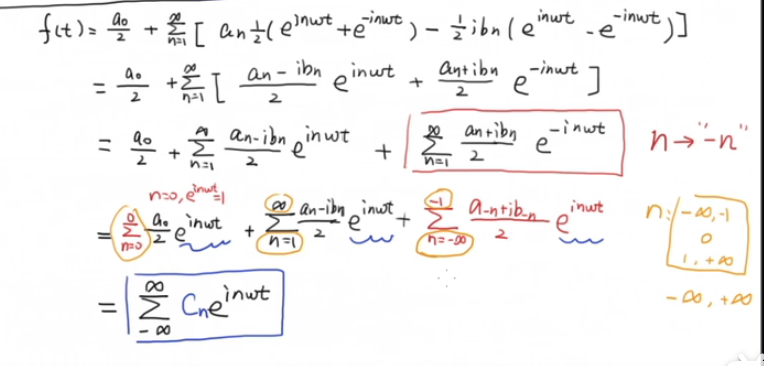 f(t) = a₀/2 + ∑_{n=1}^{∞} [ aₙ ½ (e^{inωt} + e^{-inωt}) - ½ ibₙ (e^{inωt} - e^{-inωt}) ]
= a₀/2 + ∑_{n=1}^{∞} [ (aₙ - ibₙ)/2 e^{inωt} + (aₙ + ibₙ)/2 e^{-inωt} ]
= a₀/2 + ∑_{n=1}^{∞} (aₙ - ibₙ)/2 e^{inωt} + ∑_{n=1}^{∞} (aₙ + ibₙ)/2 e^{-inωt} n → "-n"
n=0, e^{inωt}=1
= ∑_{n=0}^{0} a₀/2 e^{inωt} + ∑_{n=1}^{∞} (aₙ - ibₙ)/2 e^{inωt} + ∑_{n=-∞}^{-1} (a₋ₙ + ib₋ₙ)/2 e^{inωt}
n: -∞, -1
0
1, +∞
-∞, +∞
= ∑_{-∞}^{∞} Cₙ e^{inωt}